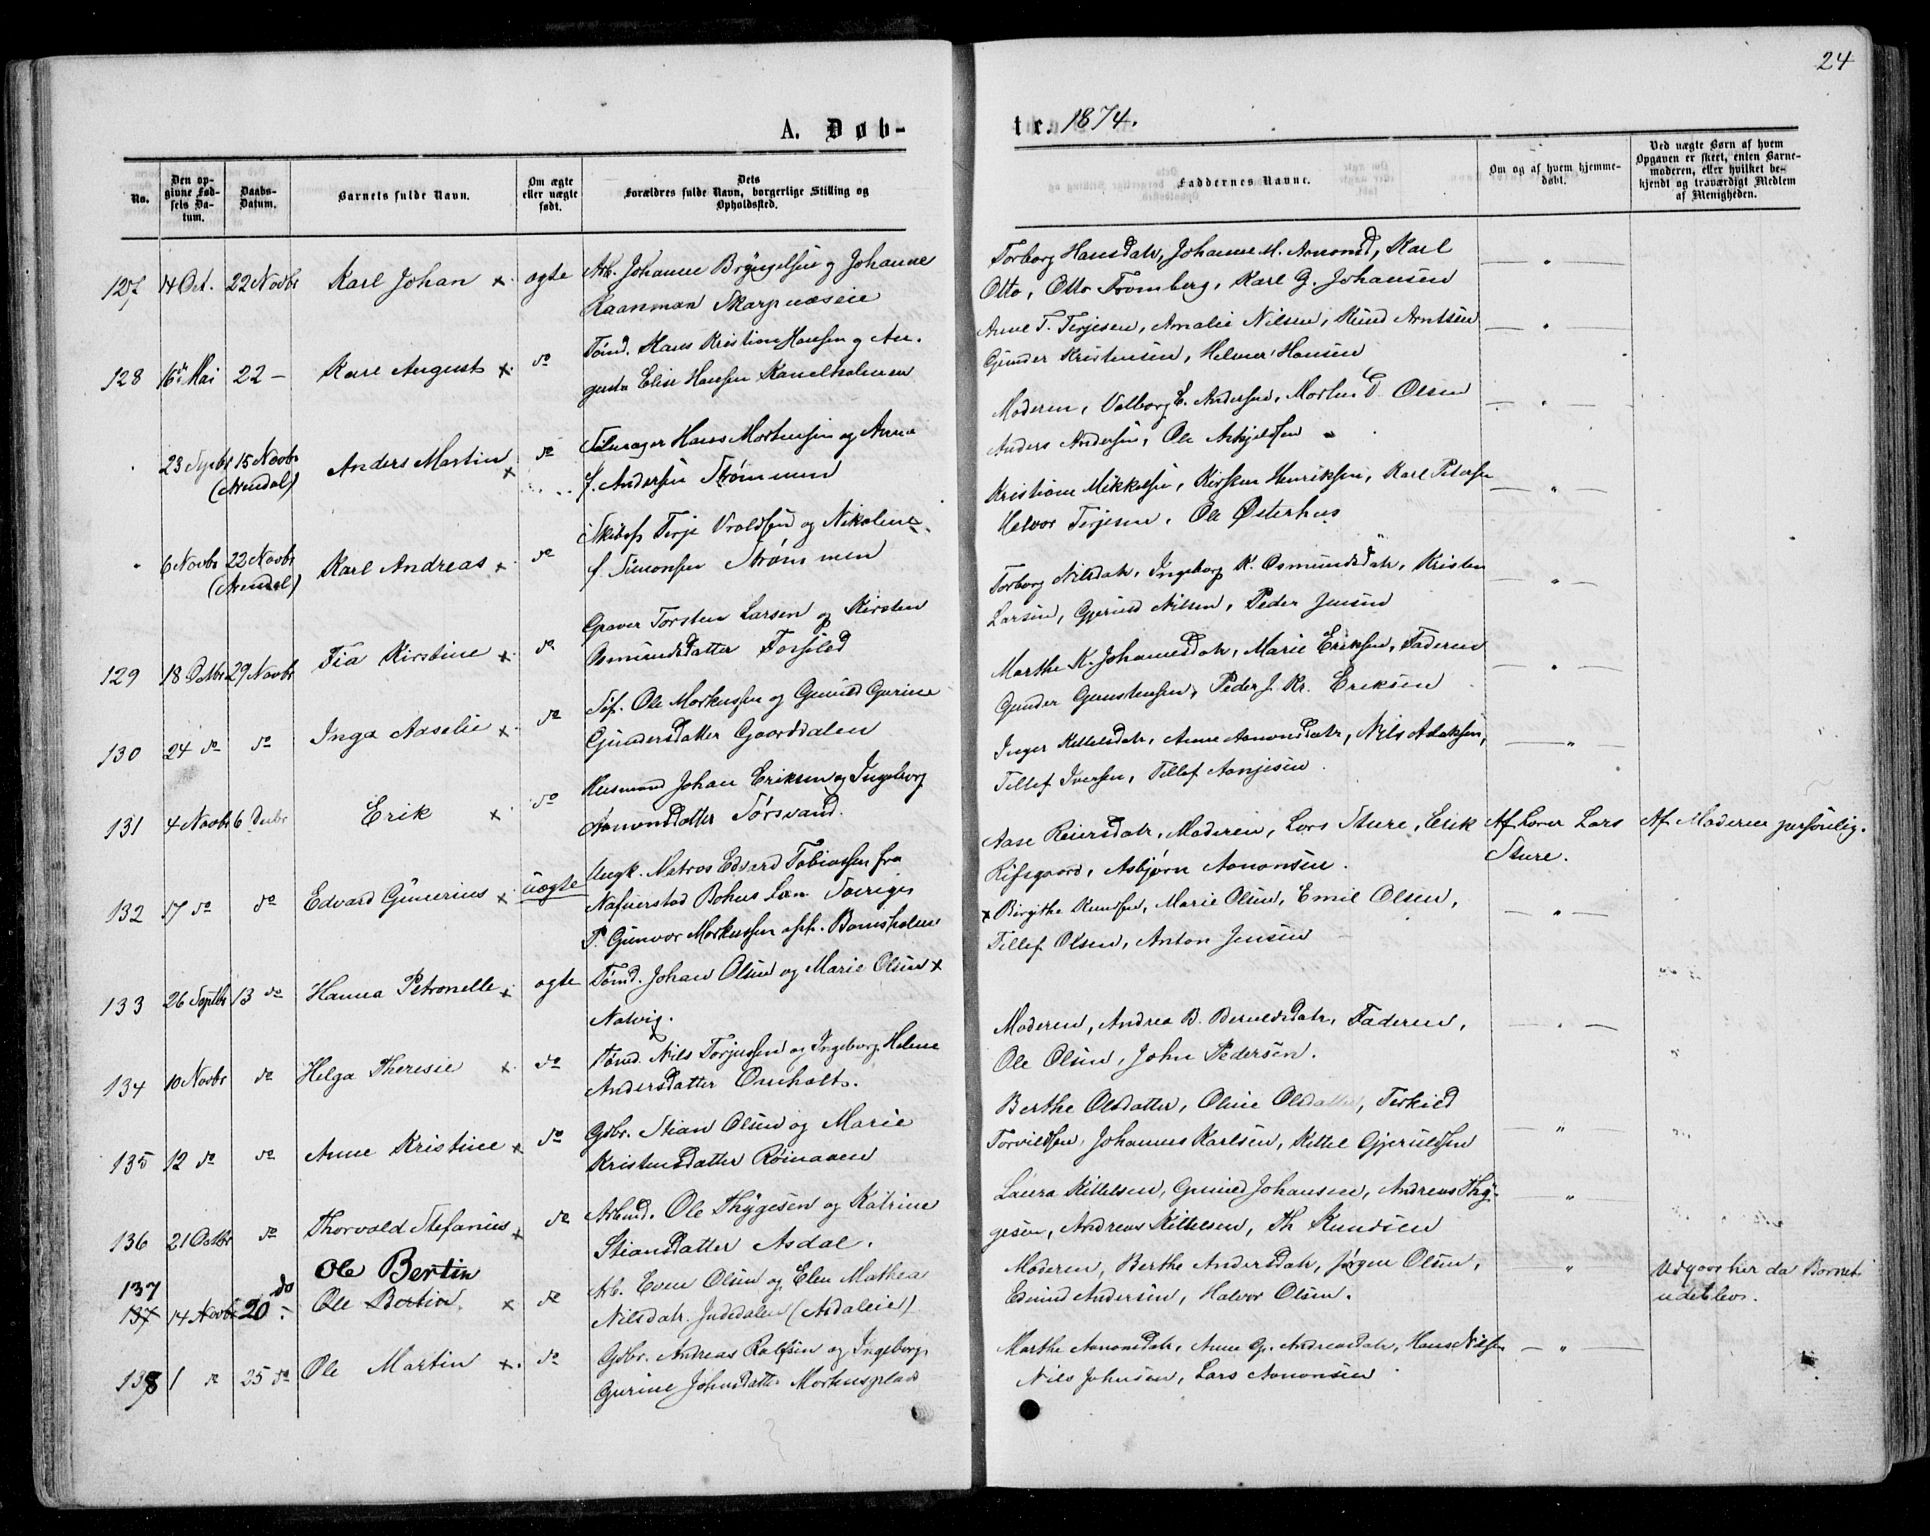 24
A. Døb-
te. 1874.
No.
Den opgivne Fødsels Datum.
Daabs-Datum.
Barnets fulde Navn.
Om ægte eller uægte født.
Dets Forældres fulde Navn, borgerlige Stilling og Opholdsted.
Faddernes Navne.
Om og af hvem hjemmedøbt.
Ved uægte Børn af hvem Opgaven er skeet, enten Barnemoderen, eller hvilket bekjendt og troværdigt Medlem af Menigheden.
127 14 Oct. 22 Novbr Karl Johan x. ægte Arb. Johanne Bryngelsen og Johanne
Kaanman Skarpnæseie
Torborg Hansdatr, Johanne M. Amonsd, Karl
Otto, Otto Fromberg, Karl G. Johansen
128 16de Mai 22 — Karl August x. do Tømd. Hans Kristian Hansen og Au-
gusta Elise Hansen Kanelholmen
Anne T. Terjesen, Amalie Nilsen, Knud Arntsen
Gunder Kristensen, Helmer Hansen
23 Septbr 15 Novbr Anders Martin x do Hans Mortensen og Anna
(Arendal) f. Andersen Strømmen
Moderen, Valborg E. Andersen, Morten D. Olsen
Anders Andersen, Ole Askjeldsen
6 Novbr 22 Novbr Karl Andreas x. do Skibsf Terje Vraldsen og Nikoline
(Arendal) f. Simonsen Strømmen
Kristiane Mikkelsen, Kirsten Henriksen, Karl Petersen
Halvor Terjesen, Ole Østerhus
129 18 Octbr 29 Novbr Tia Kirstine x. do Graver Torsten Larsen og Kirsten
Osmundsdatter Torsjled
Torborg Nilsdatr, Ingeborg K. Osmundsdatr, Kristen
Larsen, Gjeruld Nilsen, Peder Jensen
130 24 do do Inga Aaselie x. do Søf. Ole Markussen og Gunild Gurine
Gundersdatter Gaarddalen
Marthe K. Johannesdatr, Marie Eriksen, Faderen
Gunder Gunstensen, Peder J. Kr. Eriksen
131 4 Novbr 6 Decbr Erik x. do Husmand Johan Eriksen og Ingeborg
Aamondsdatter Tørsvand.
Inger Kittelsdatr, Anne Aamondsdatr, Nils Aslaksen,
Tellef Iversen, Tellef Aanjesen.
132 17 do do Edvard Gunerius x uægte Ungk. Matros Edvard Tobiassen fra
Nafverstad Bohus Län Sverige
P. Gunvor Markussen opp. Bomsholmen
Aase Reiersdatr, Moderen, Lars Sture, Erik
Rifsgaard, Asbjørn Aanonsen.
Af Lærer Lars
Sture.
Af Moderen personlig.
133 26 Septbr 13 do Hanna Petronelle x. ægte Tømd. Johan Olsen og Marie Olsen x
Natvig.
x Birgithe Knudsen, Marie Olsen, Emil Olsen,
Tellef Olsen, Anton Jensen
134 10 Novbr do Helga Theresie x. do Tømd. Nils Torjussen og Ingeborg Helene
Andersdatter Omholt.
Moderen, Andrea B. Beruldsdatr, Faderen,
Ole Olsen, John Pedersen.
135 12 do do Anne Kristine x do Gdbr. Stian Olsen og Marie
Kristensdatter Røinaaen
Berthe Olsdatter, Oline Olsdatter, Terkild
Torvildsen, Johannes Karlsen, Kittel Gjeruldsen
136 21 Octbr do Thorvald Stefanius x do Arbmd. Ole Thygesen og Katrine
Stiansdatter Asdal.
Laura Kittelsen, Gunild Johansen, Andreas Thy-
gesen, Andreas Kittelsen, Th. Knudsen
137 do Ole Bertin
137 14 Novbr 20 - Ole Bertin. x do Arb. Even Olsen og Elen Mathea
Nilsdatr. Judedalen (Asdaleie)
Moderen, Berthe Andersdatr, Jørgen Olsen,
Edmund Andersen, Halvor Olsen.
Udgaar her da Barnet
udeblev.
138 1 do 25 do Ole Martin x. do Gdbr. Andreas Rolfsen og Ingeborg
Gurine Johnsdatter Mortensplads
Marthe Aanonsdatr, Anne G. Andreasdatr, Hans Nilsen
Nils Johnsen, Lars Aanonsen